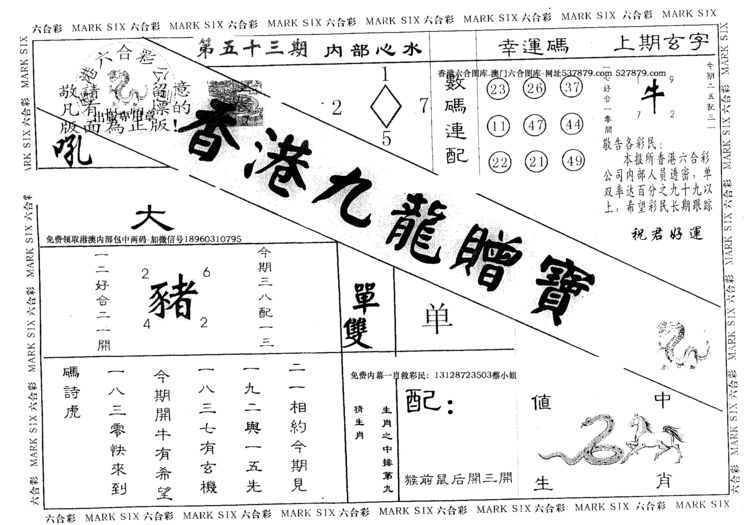 六合彩 MARK SIX 六合彩 MARK SIX 六合彩 MARK SIX 六合彩 MARK SIX 六合彩 MARK SIX 六合彩 MARK SIX 六合彩 MARK SIX 六合彩
第五十三期 內部心水
幸運碼
上期玄字
六合彩
敬請留意
凡有標的
版面為正版!
吼
1
2
7
5
香港六合图库.澳门六合图库- 网址537879.com 527879.com
數碼連配
23 26 37
11 47 44
22 21 49
一二好合一零開
1 9
牛
7 2
今期二五配三一
敬告各彩民:
本报所香港六合彩
公司内部人員透密,单
双率达百分之九十九以
上,希望彩民长期跟踪
祝君好運
香港九龍贈寶
大
免费领取港澳内部包中两码-加微信号18960310795
一二好合二一開
2 6
豬
4 2
今期三八配一三
單雙
单
免费内幕一肖救彩民: 13128723503蔡小姐
碼詩虎
一八三零快來到
今期開牛有希望
一八三七有玄機
一九二與一五先
二一相約今期見
猜生肖
生肖之中撞第九
配:
猴前鼠后開三開
值 中
生 肖
六合彩 MARK SIX 六合彩 MARK SIX 六合彩 MARK SIX 六合彩 MARK SIX 六合彩 MARK SIX 六合彩 MARK SIX 六合彩 MARK SIX 六合彩